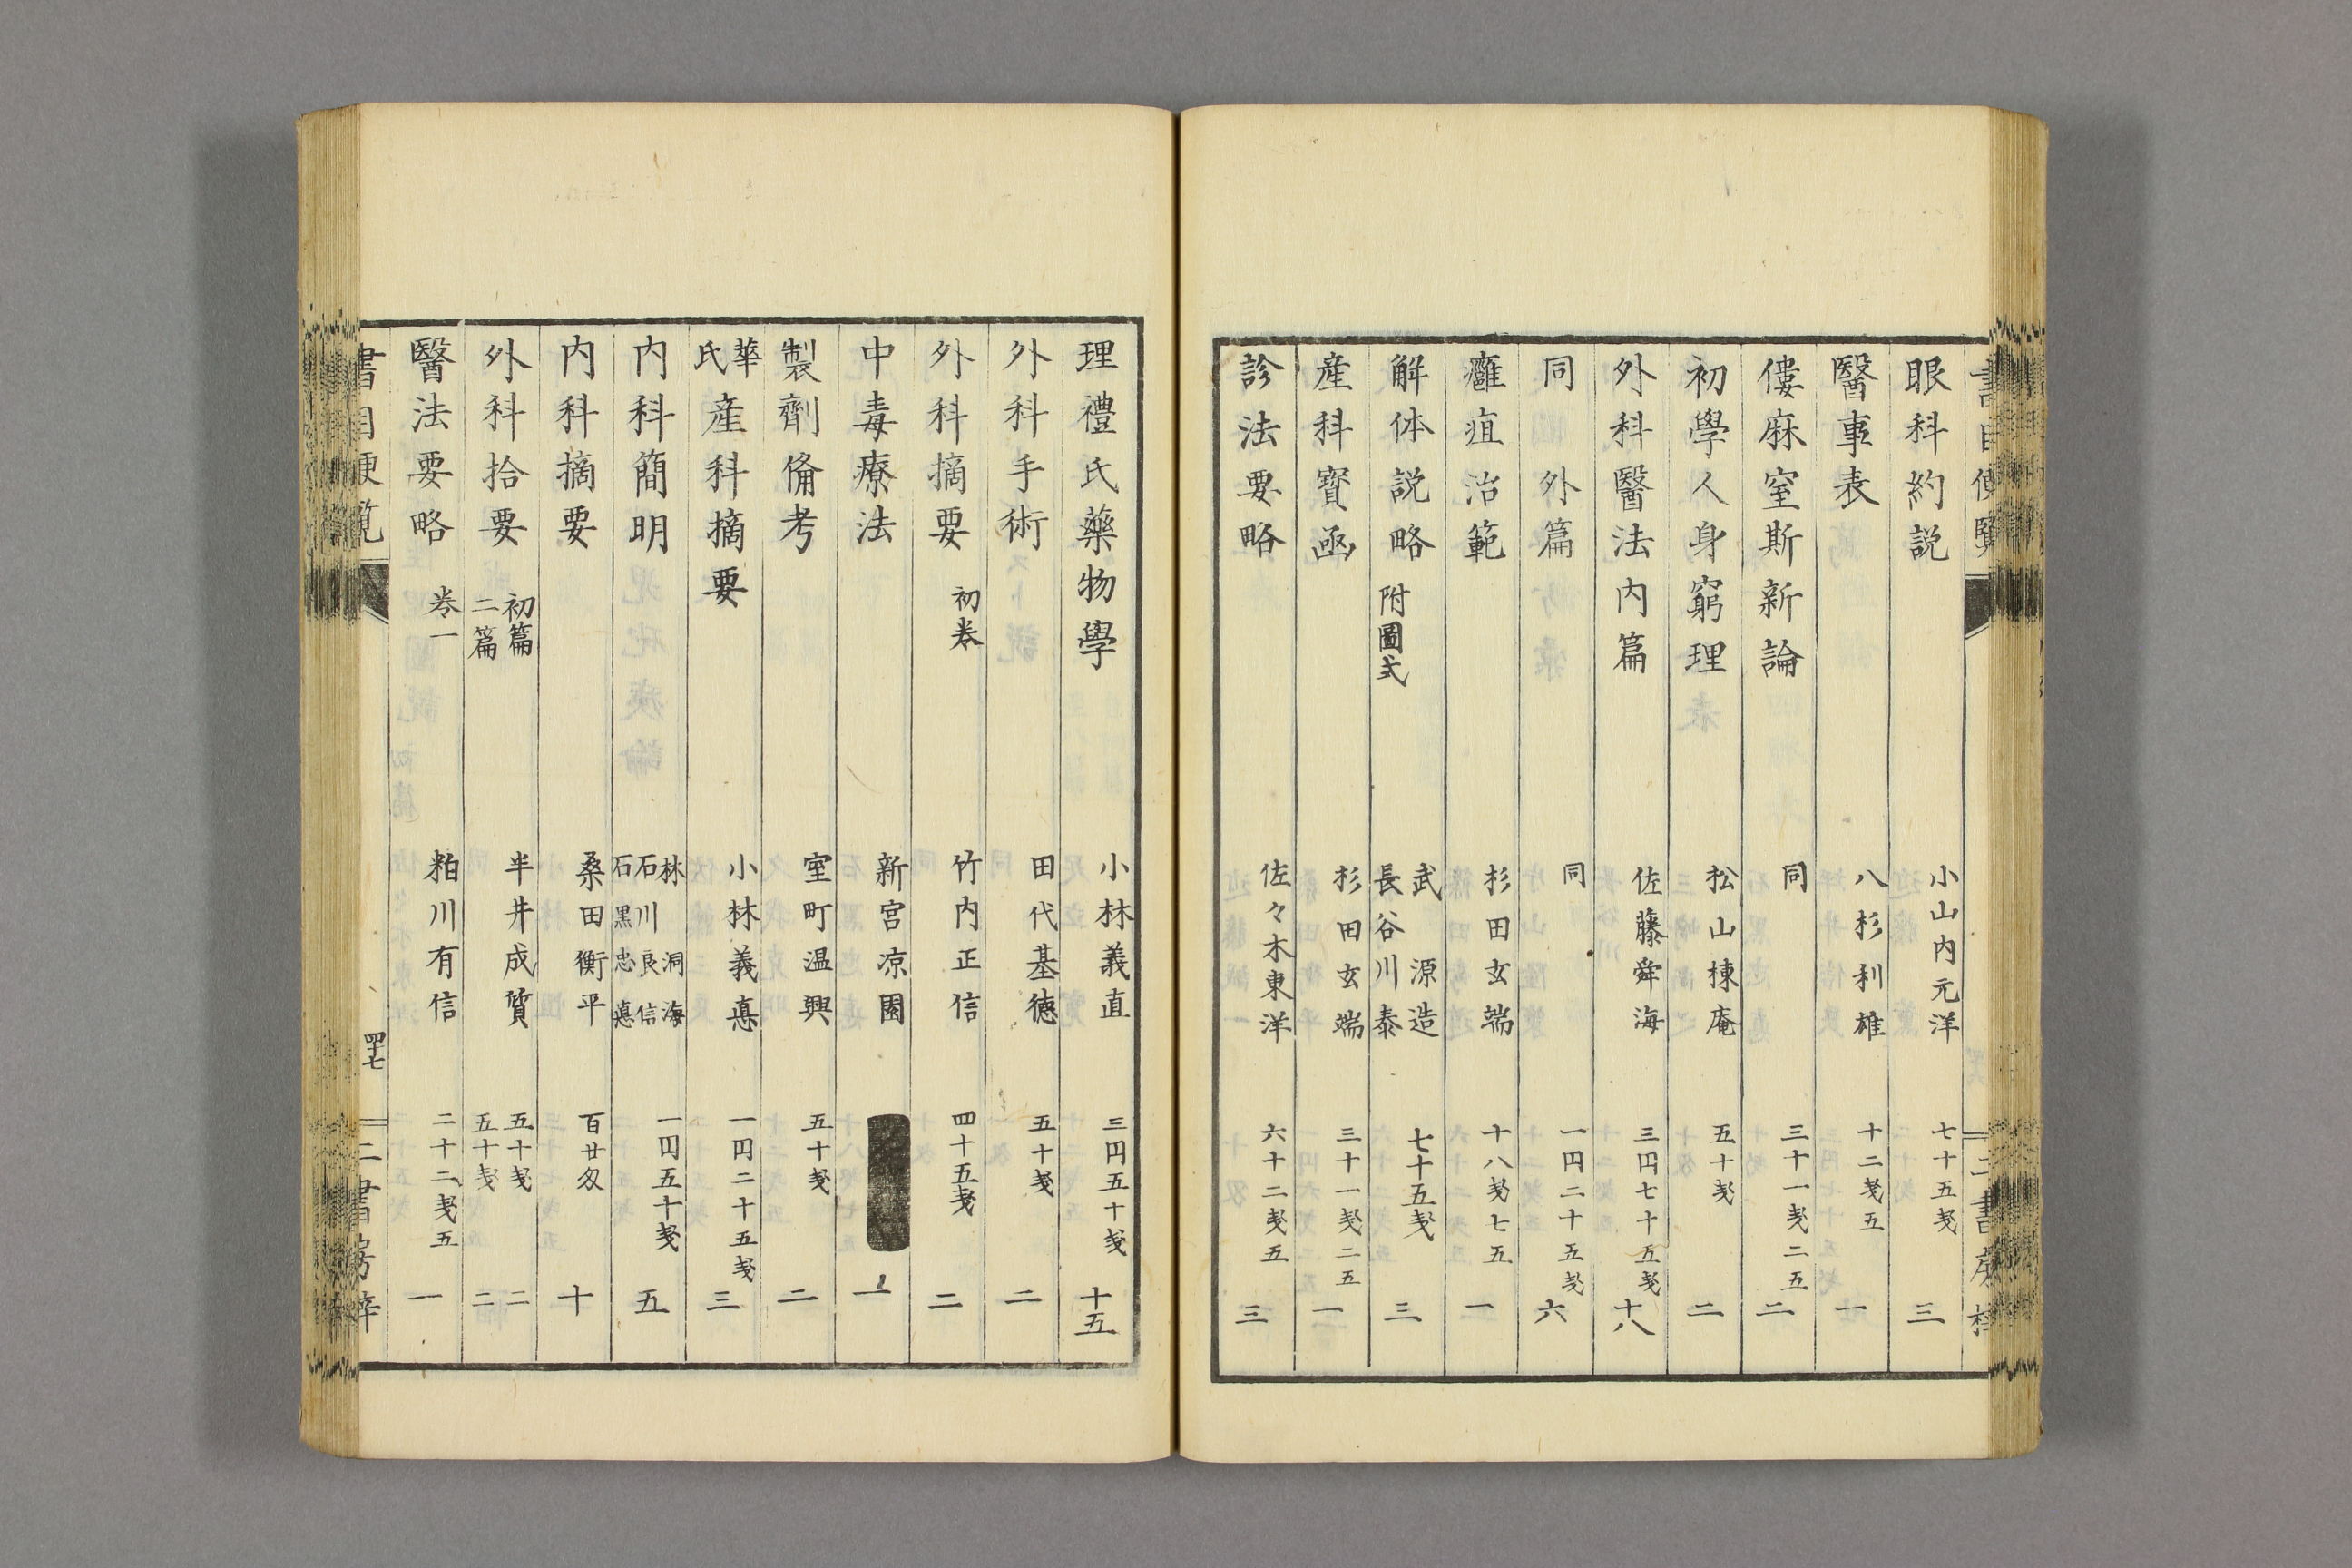 眼科約説 小山内元洋 七十五戔 三
醫事表 八杉利雄 十二戔五 一
僂麻窒斯新論 同 三十一戔二五 二
初學人身窮理 松山棟庵 五十戔 二
外科醫法内篇 佐藤舜海 三円七十五戔 十八
同 外篇 同 一円二十五戔 六
癰疽治範 杉田玄端 十八戔七五 一
解体説略 附圖式 武源造 長谷川泰 七十五戔 三
産科寳函 杉田玄端 三十一戔二五 一
診法要略 佐々木東洋 六十二戔五 三
理禮氏藥物學 小林義直 三円五十戔 十五
外科手術 田代基徳 五十戔 二
外科摘要 初巻 竹内正信 四十五戔 二
中毒療法 新宮凉園 一
製劑備考 室町温興 五十戔 二
華氏産科摘要 小林義惪 一円二十五戔 三
内科簡明 林洞海 石川良信 石黒忠惪 一円五十戔 五
内科摘要 桑田衡平 百廿匁 十
外科拾要 初篇 二篇 半井成質 五十戔 五十戔 二 二
醫法要略 巻一 粕川有信 二十二戔五 一
書目便覧 四十七 三書房梓